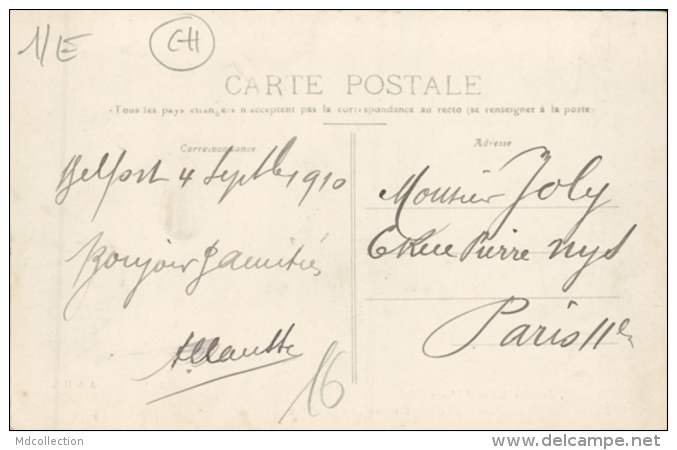 1/E
CH
CARTE POSTALE
Tous les pays étrangers n'acceptent pas la correspondance au recto (se renseigner à la poste)
Correspondance
Adresse
Belfort 4 Septbe 1910
Bonjour & amitiés
Monsieur Joly
6 Rue Pierre Nys
Paris 11e
16
Mdcollection
www.delcampe.net